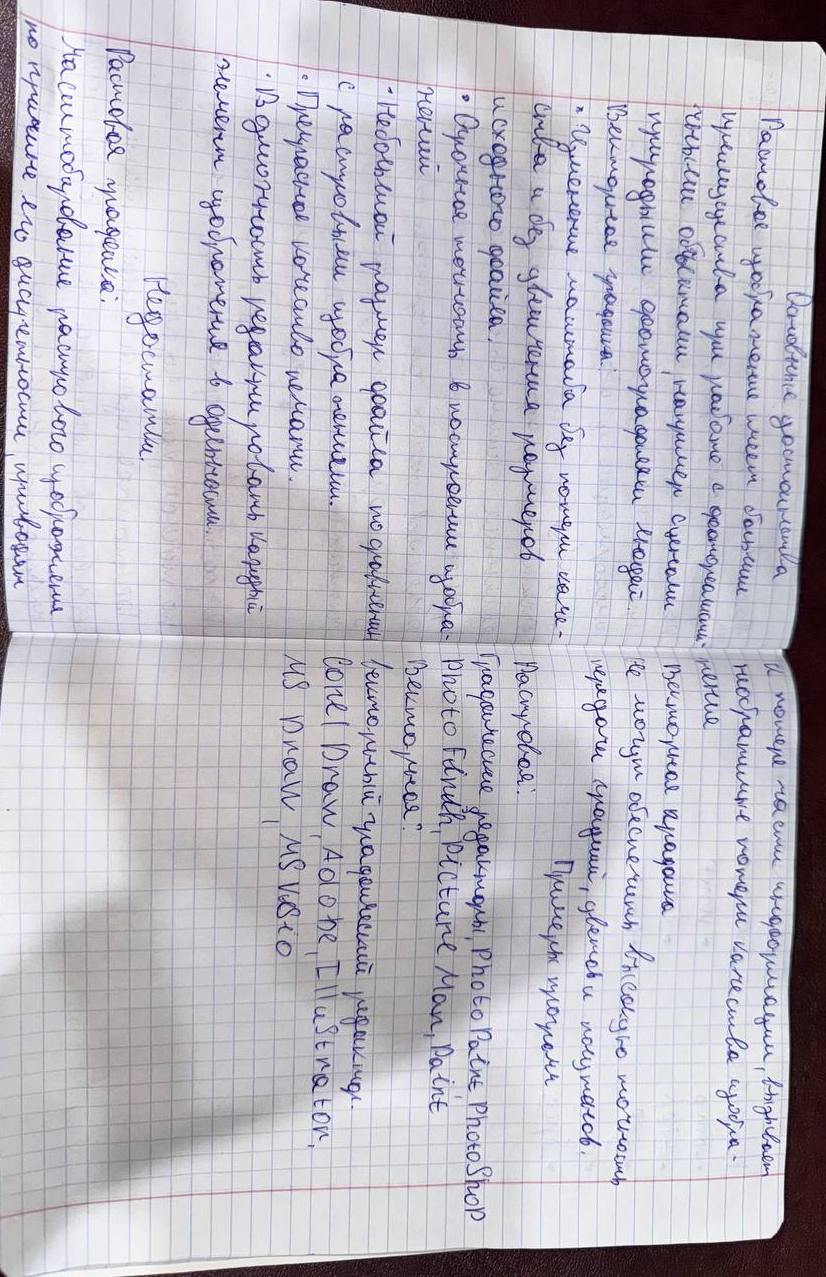 Основные достоинства
Растовое изображение имеет большии
преимущества при работе с фотореалисти-
чными объектами, например сценами
природы или фотографиями людей.
Векторная графика:
• Изменение масштаба без потери каче-
ства и без увеличения размеров
исходного файла.
• Огрочная точность в построении изобра-
жений
• Небольшой размер файла по сравнению
с растровыми изображениями.
• Прекрасное качество печати.
• Возможность редактировать каждый
элемент изображения в одельности.
Недостатки.
Растовая графика:
Масштабирование растрового изображения
по причине его дискретности, приводят
к потере части информации, вызывает
необратимые потери качества изобра-
жения
Векторная графика
Не могут обеспечить высокую точность
передачи градций, цветов и полутонов.
Примеры програм
Растровая:
Графические редакторы, Photo Paint, PhotoShop
Photo Finish, Picture Man, Paint
Векторная:
Векторный графический редактор.
Corel Draw, Adobe, Illustrator,
MS Draw, MS Visio